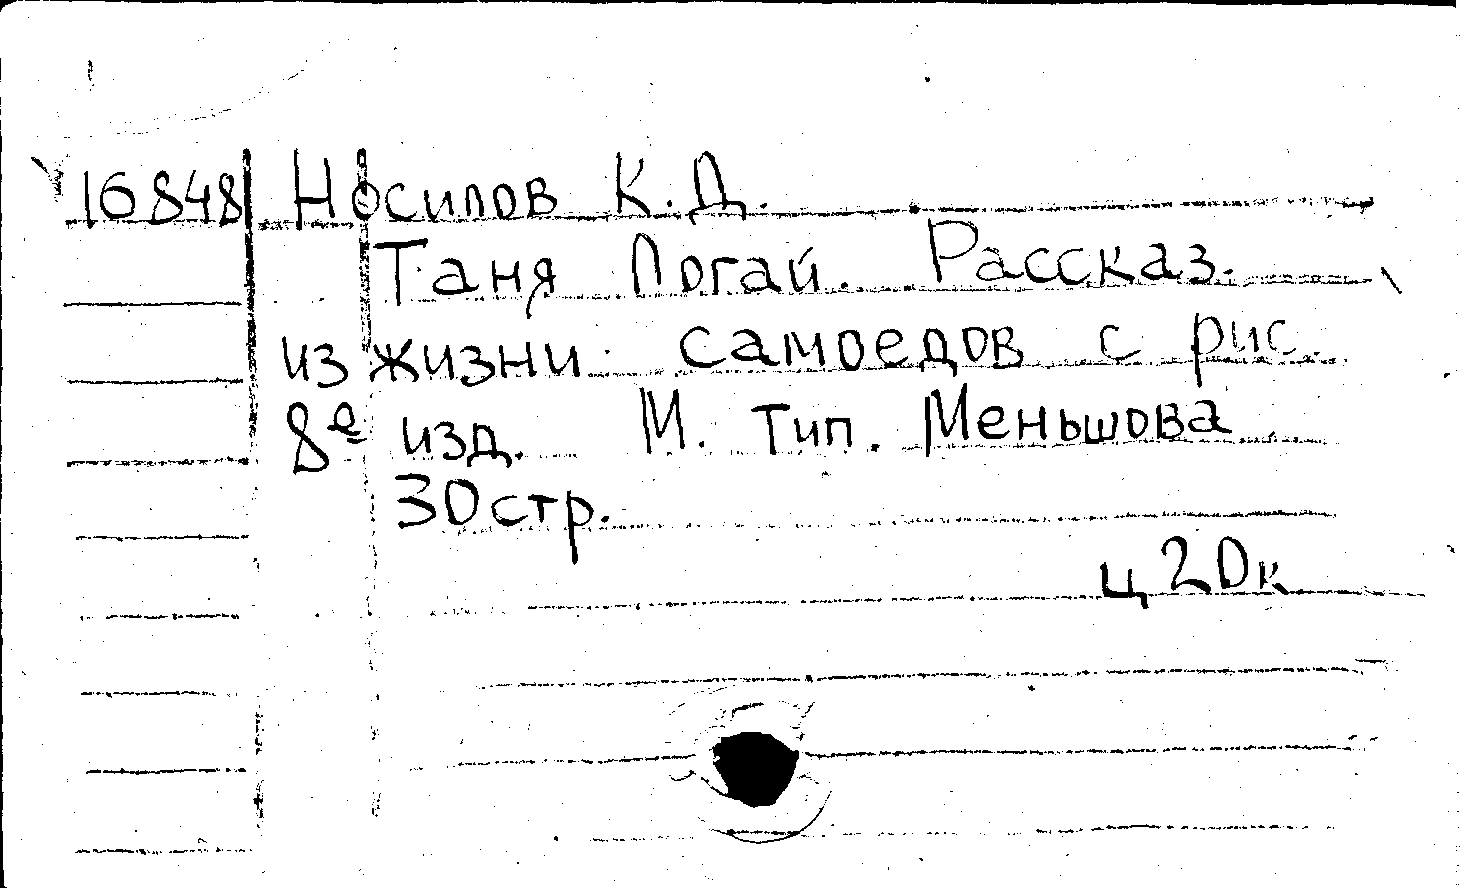 16848 Носилов К. Д.
Таня Логай. Рассказ.
из жизни самоедов с рис.
8е изд. М. Тип. Меньшова
30 стр.
ц 20к